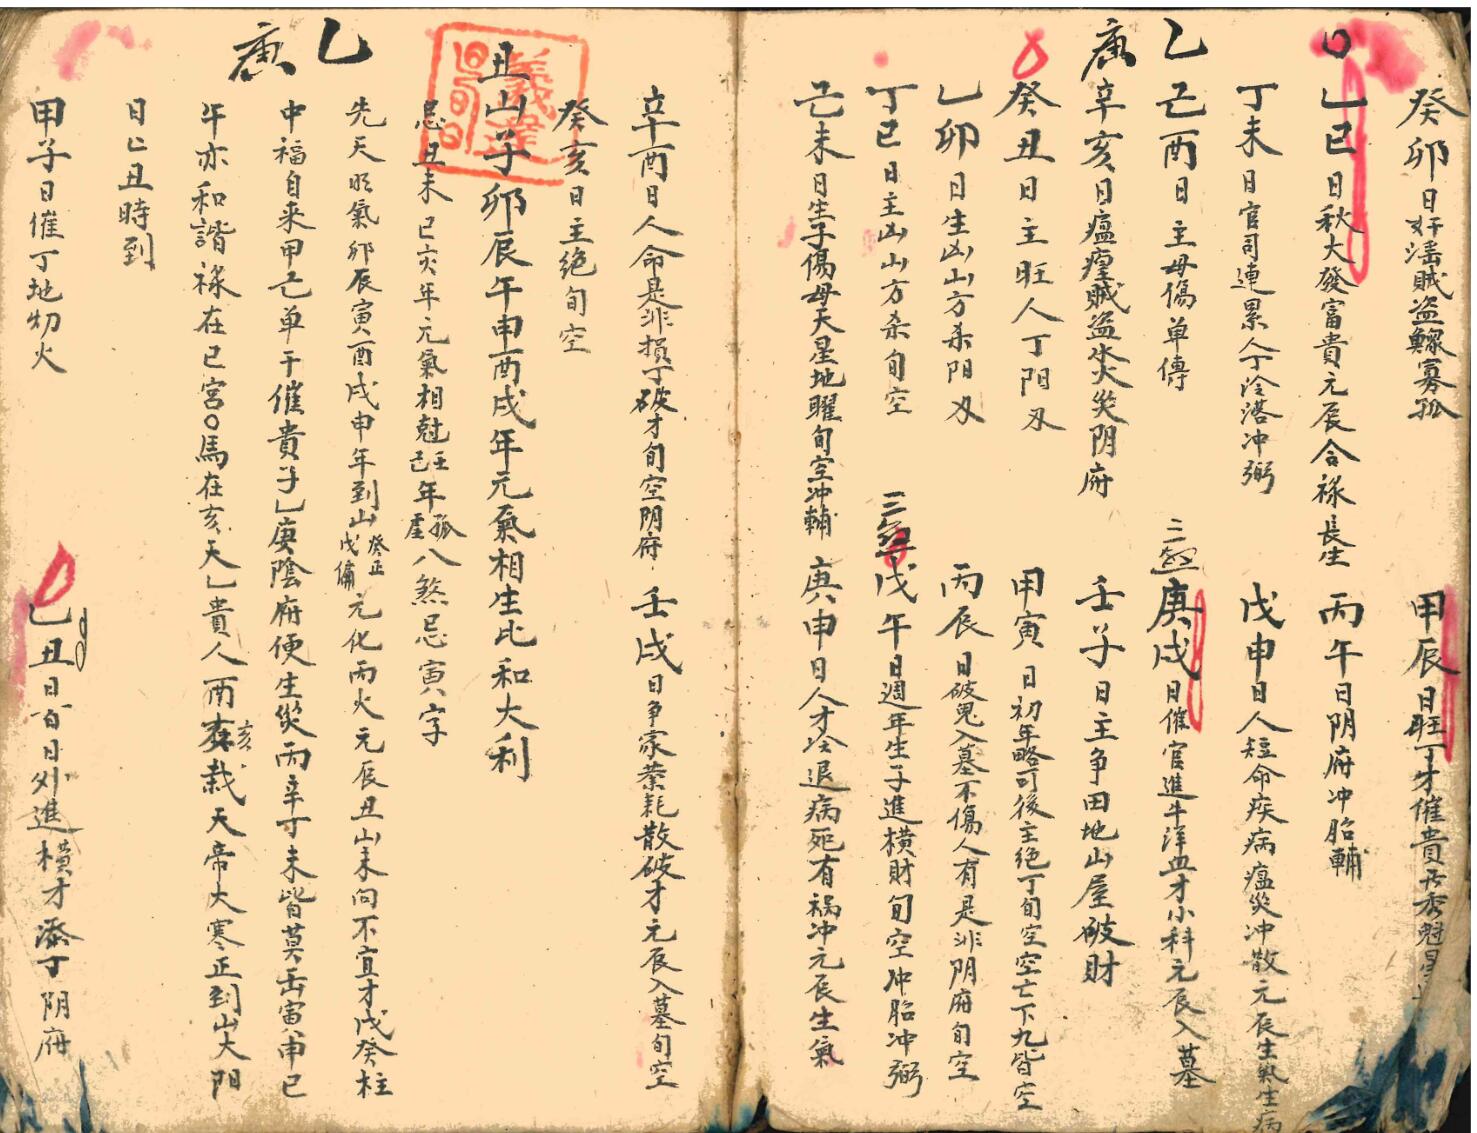 癸卯日奸淫賊盗鰥寡孤
甲辰日旺丁才催貴
乙巳日秋大發富貴元辰合祿長生
丙午日阴府冲胎輔
丁未日官司連累人丁冷落冲弼
戊申日人短命疾病瘟災冲散元辰生氣生病
乙 己酉日主母傷単傳
三煞 庚戌日催官進牛洋血才小科元辰入墓
庚 辛亥日瘟瘴賊盗水火災阴府
壬子日主争田地山屋破財
癸丑日主旺人丁阳刃
甲寅日初年略可後主绝丁旬空空亡下九皆空
乙卯日生凶山方杀阳刃
丙辰日破鬼入墓不傷人有是非阴府旬空
丁巳日主凶山方杀旬空
三煞 戊午日週年生子進横財旬空冲胎冲弼
己未日生子傷母天星地曜旬空冲輔
庚申日人才冷退病死有禍冲元辰生氣
辛酉日人命是非損丁破才旬空阴府
壬戌日争家業耗散破才元辰入墓旬空
癸亥日主绝旬空
丑山子卯辰午申酉戌年元氣相生比和大利
忌丑未巳亥年元氣相尅壬己年孤虚八煞忌寅字
乙 先天旺氣卯辰寅酉戌申年到山癸正戊偏元化丙火元辰丑山未向不宜才戊癸柱
庚 中福自来甲己单干催貴子乚庚陰府便生災丙辛丁未皆莫壬寅申巳
午亦和諧祿在巳宫〇馬在亥天乚貴人酉亥栽天帝大寒正到山大阳
日亡丑時到
甲子日催丁地刃火
乙丑日百日外進横才添丁阴府